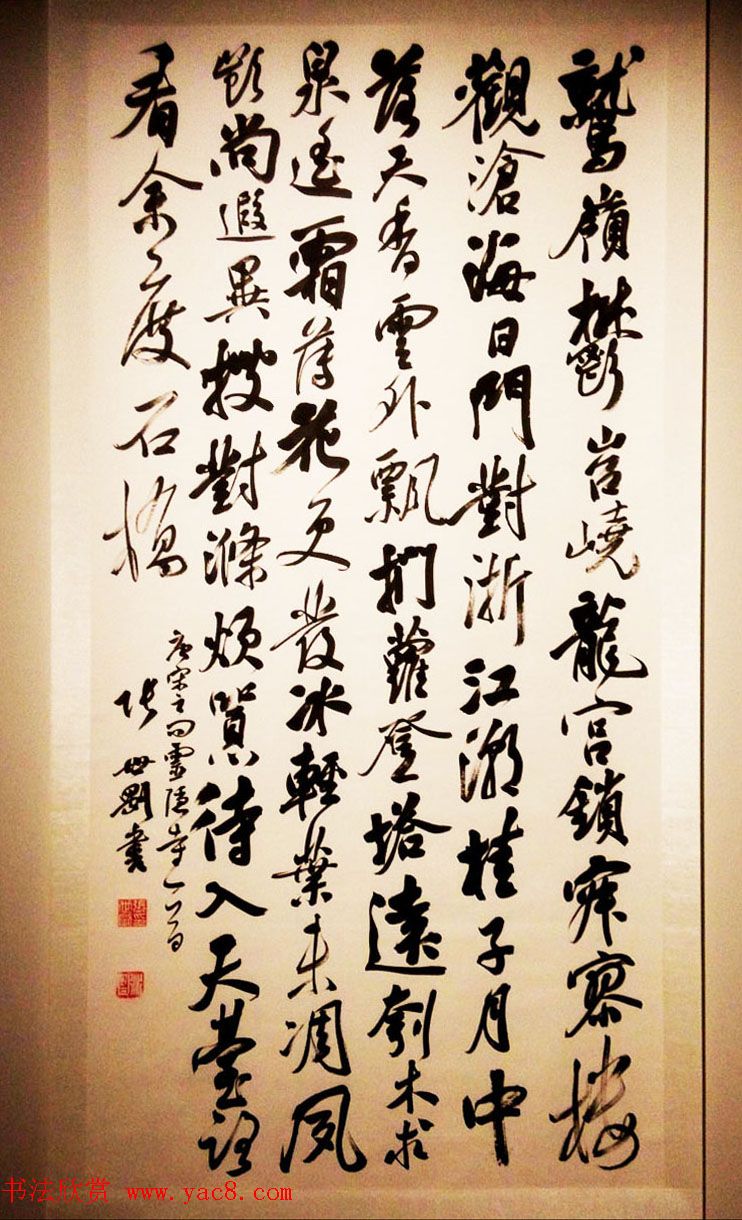 鷲嶺鬱岧嶢龍宮鎖寂寥樓
觀滄海日門對浙江潮桂子月中
落天香雲外飄捫蘿登塔遠刳木取
泉遙霜薄花更發冰輕葉未凋夙
齡尚遐異搜對滌煩囂待入天臺路
看余度石橋
唐宋之問靈隱寺一首
張世剛書
书法欣赏 www.yac8.com